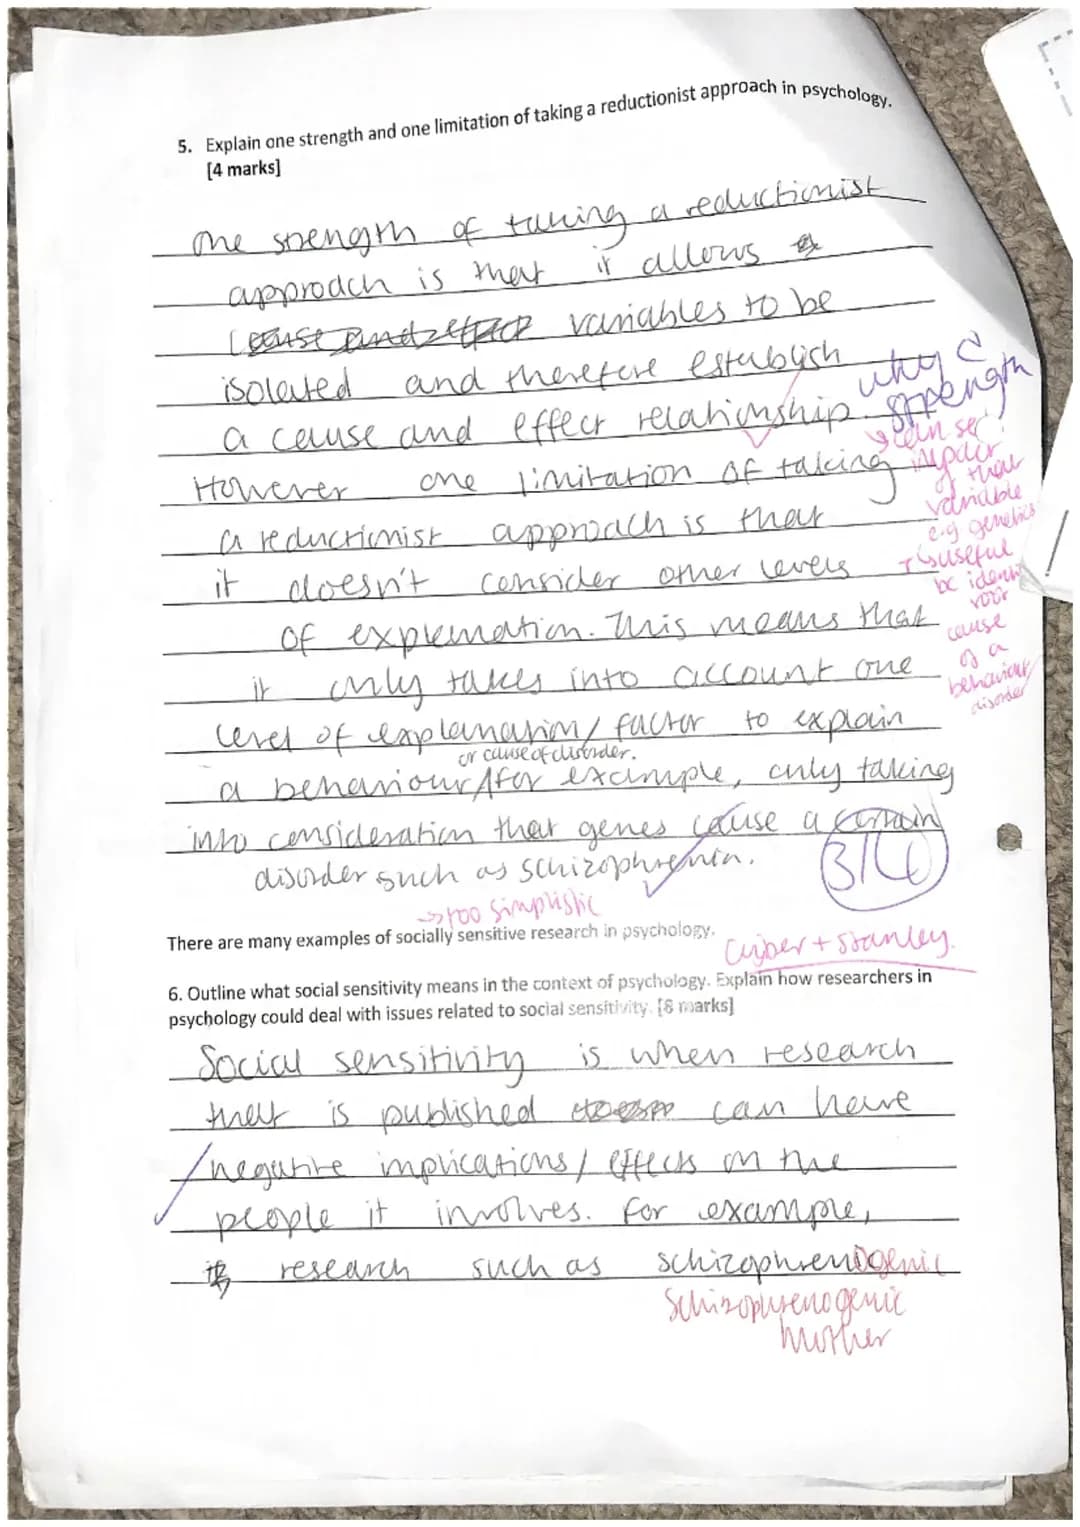 5. Explain one strength and one limitation of taking a reductionist approach in psychology.
[4 marks]
One strength of taking a reductionist
approach is that it allows
cause and effect variables to be
isolated and therefore establish
a cause and effect relationship.
why a
strength?
→ can see
impact
of that
variable
e.g genetics
useful
be identify
root
cause
of a
behaviour/
disorder
However one limitation of taking
a reductionist approach is that
it doesn't consider other levels
of explanation. This means that
it only takes into account one
level of explanation/factor to explain
or cause of disorder.
a behaviour/for example, only taking
into consideration that genes cause a certain
disorder such as schizophrenia.
3/4
→ too simplistic
There are many examples of socially sensitive research in psychology.
+ Stanley.
6. Outline what social sensitivity means in the context of psychology. Explain how researchers in
psychology could deal with issues related to social sensitivity. [8 marks]
Social sensitivity is when research
that is published can have
negative implications/effects on the
people it involves. For example,
research such as schizophrenogenic
Schizophrenogenic
mother